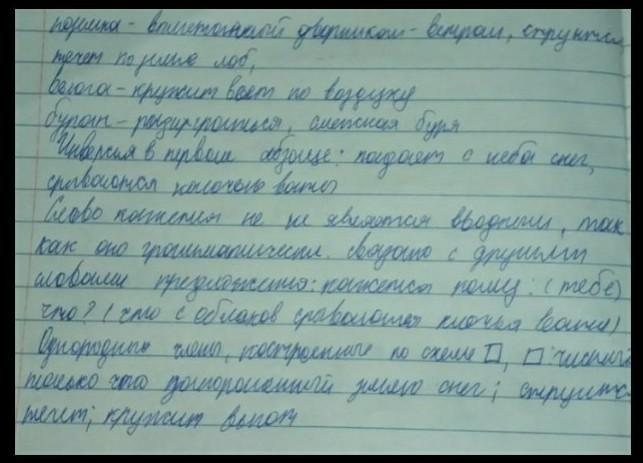 поземка - выметанной дворником - ветром, струится
течет по земле
вьюга - кружит воет по воздуху
буран - разыграться, снежная буря
Инверсия в первом абзаце: падает с неба снег,
срываются клочья ваты
Слово кажется не не является вводным, так
как оно грамматически связано с другими
словами предложения: кажется кому: (тебе)
что? (что с облаков срываются клочья ваты)
Однородные члены, построенные по схеме □, □ чистый
только что запорошенный землю снег; струится
течет; кружит